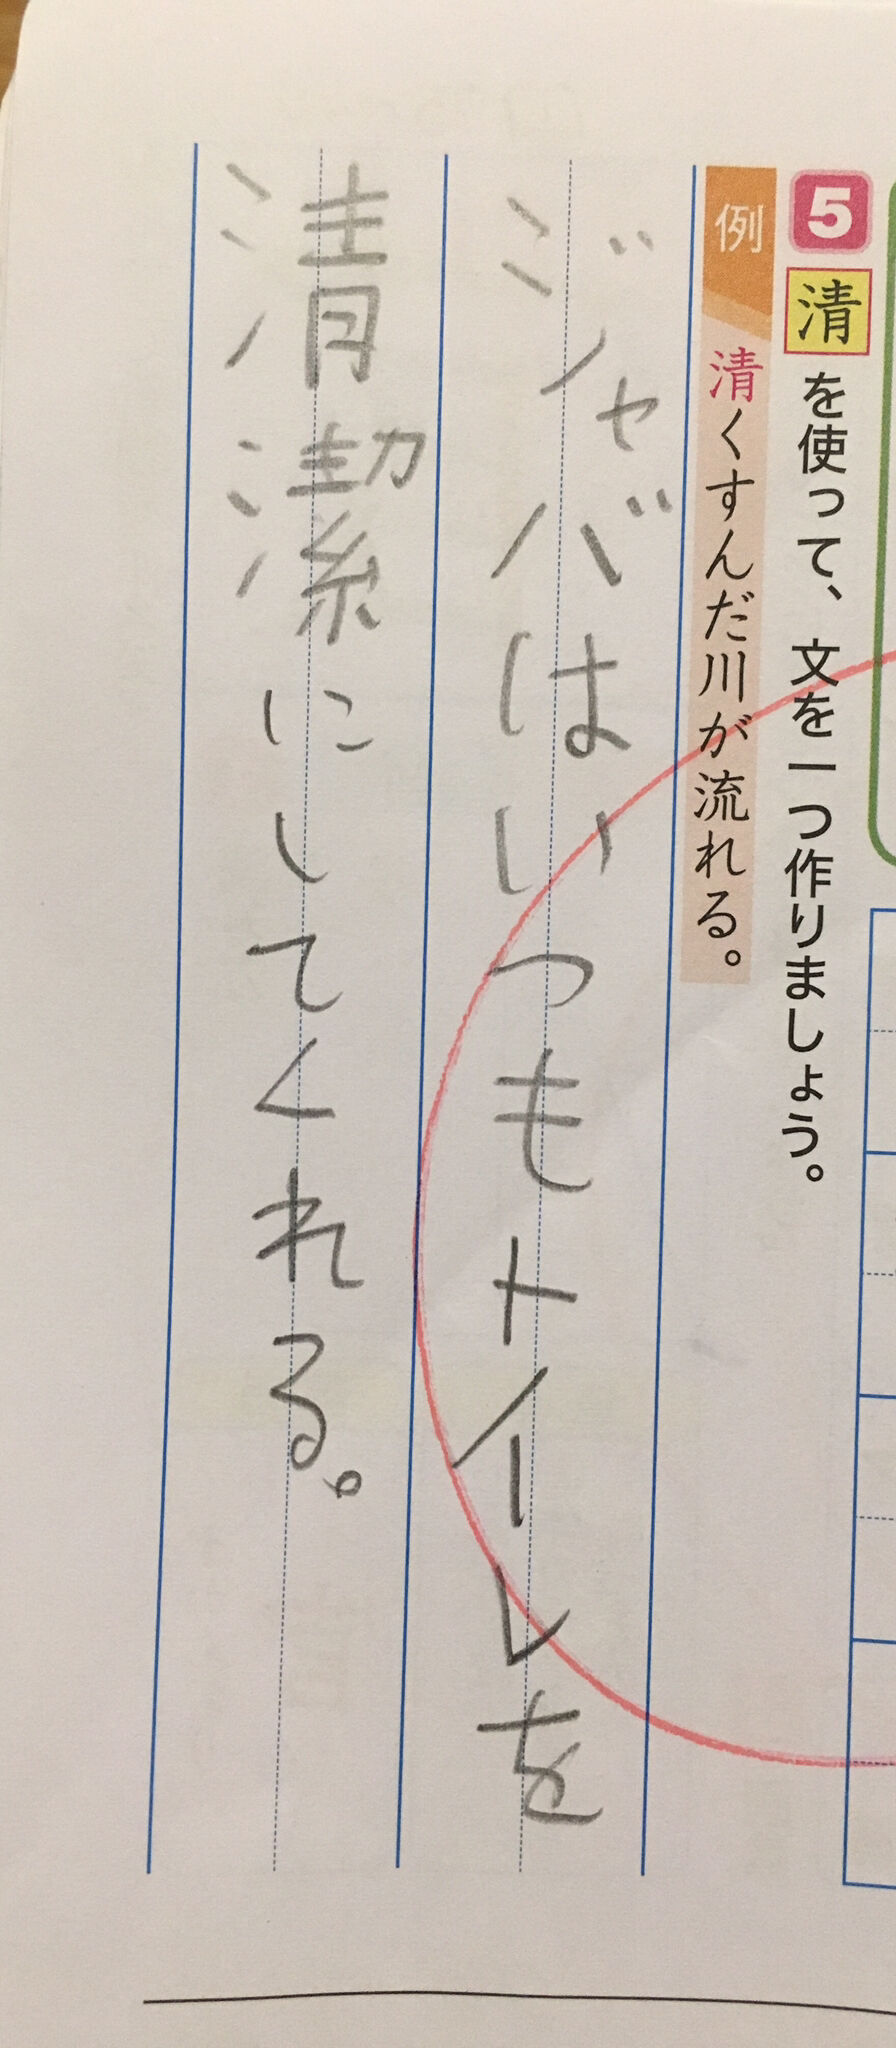 5 清を使って、文を一つ作りましょう。
例 清くすんだ川が流れる。
ジャバはいつもトイレを
清潔にしてくれる。